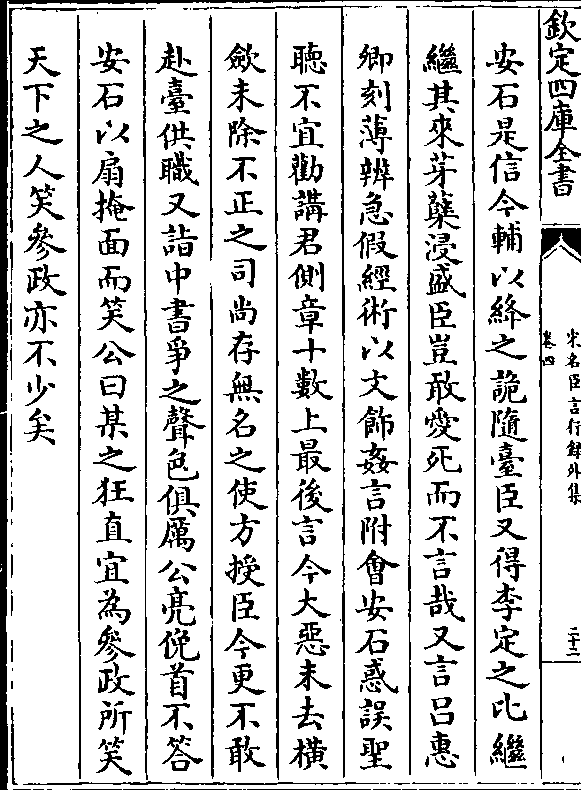 欽定四庫全書
宋名臣言行録外集
卷四
二十二
安石是信今輔以絳之詭隨臺臣又得李定之比繼
繼其來芽蘖浸盛臣豈敢愛死而不言哉又言吕惠
卿刻薄辨急假經術以文飾姦言附會安石惑誤聖
聽不宜勸講君側章十數上最後言今大惡未去横
斂未除不正之司尚存無名之使方授臣今更不敢
赴臺供職又詣中書爭之聲色俱厲公亮俛首不答
安石以扇掩面而笑公曰某之狂直宜為參政所笑
天下之人笑參政亦不少矣